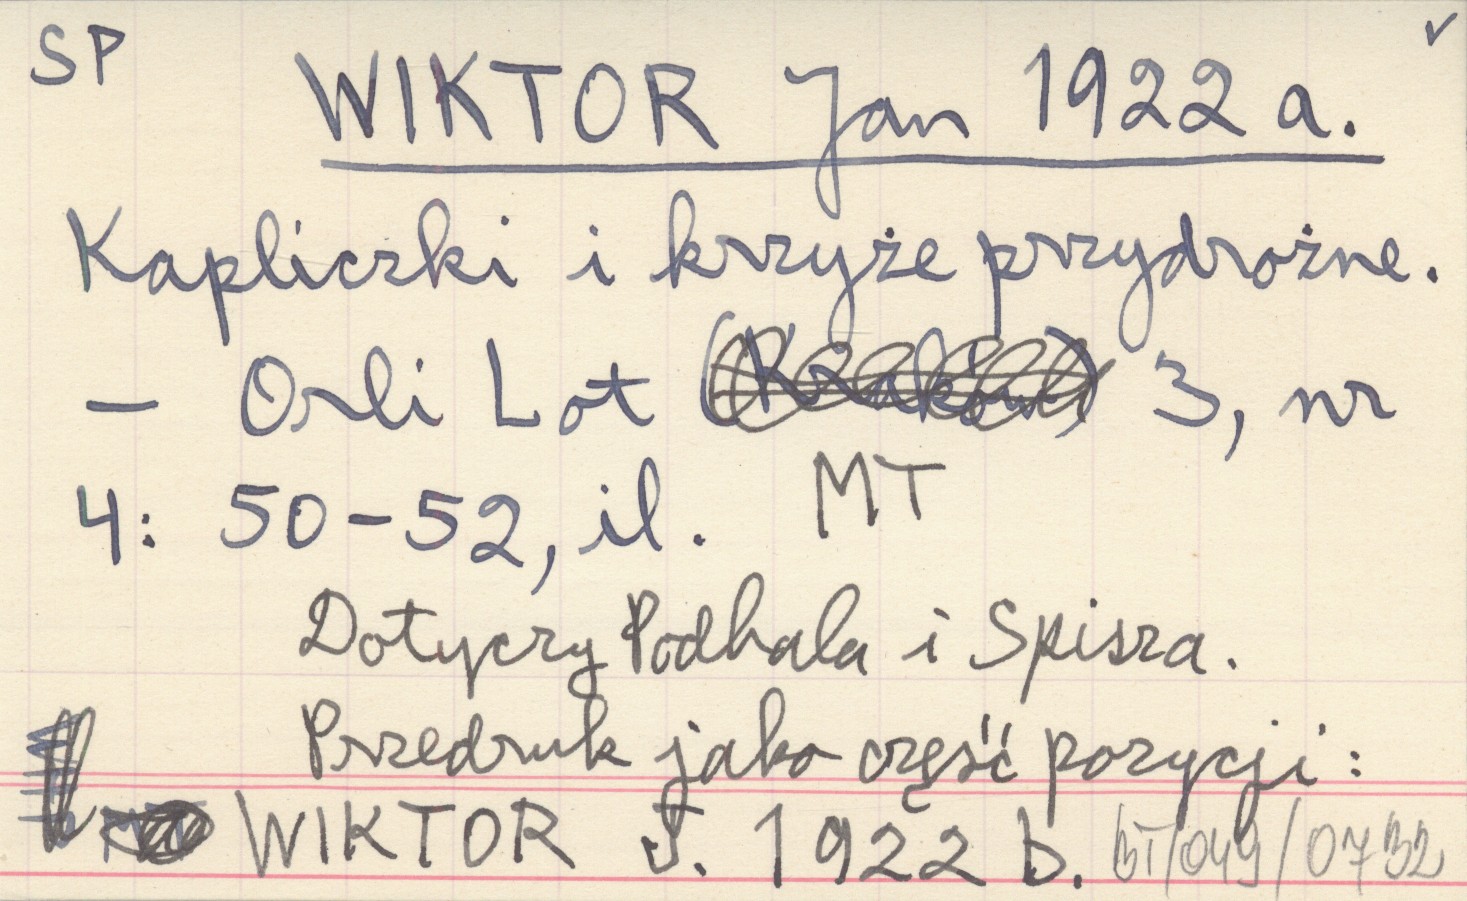 SP
WIKTOR Jan 1922 a.
Kapliczki i krzyże przydrożne.
— Orli Lot (Kraków) 3, nr
4: 50-52, il. MT
Dotyczy Podhala i Spisza.
Przedruk jako część pozycji:
WIKTOR J. 1922 b. BT/049/0732